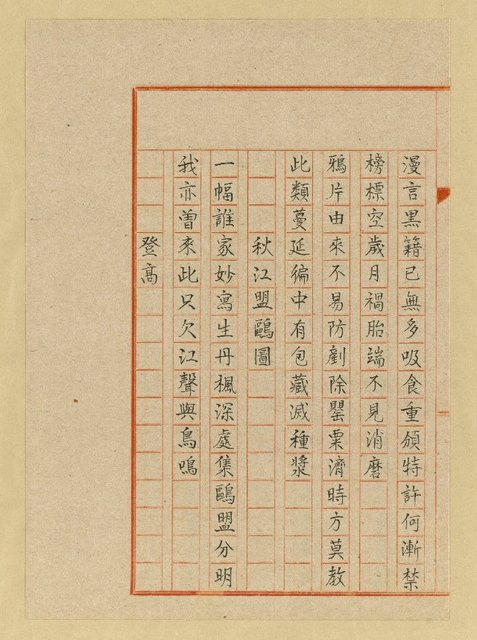 漫言黑籍已無多吸食重頒特許何漸禁
榜標空歲月禍胎端不見消磨
鴉片由來不易防剷除罌粟濟時方莫教
此類蔓延徧中有包藏滅種漿
秋江盟鷗圖
一幅誰家妙寫生丹楓深處集鷗盟分明
我亦曾來此只欠江聲與鳥鳴
登高